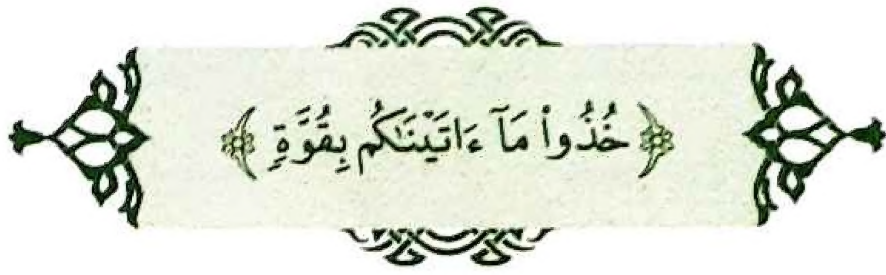 ﴿ خُذُوا۟ مَآ ءَاتَيْنَـٰكُم بِقُوَّةٍ ﴾